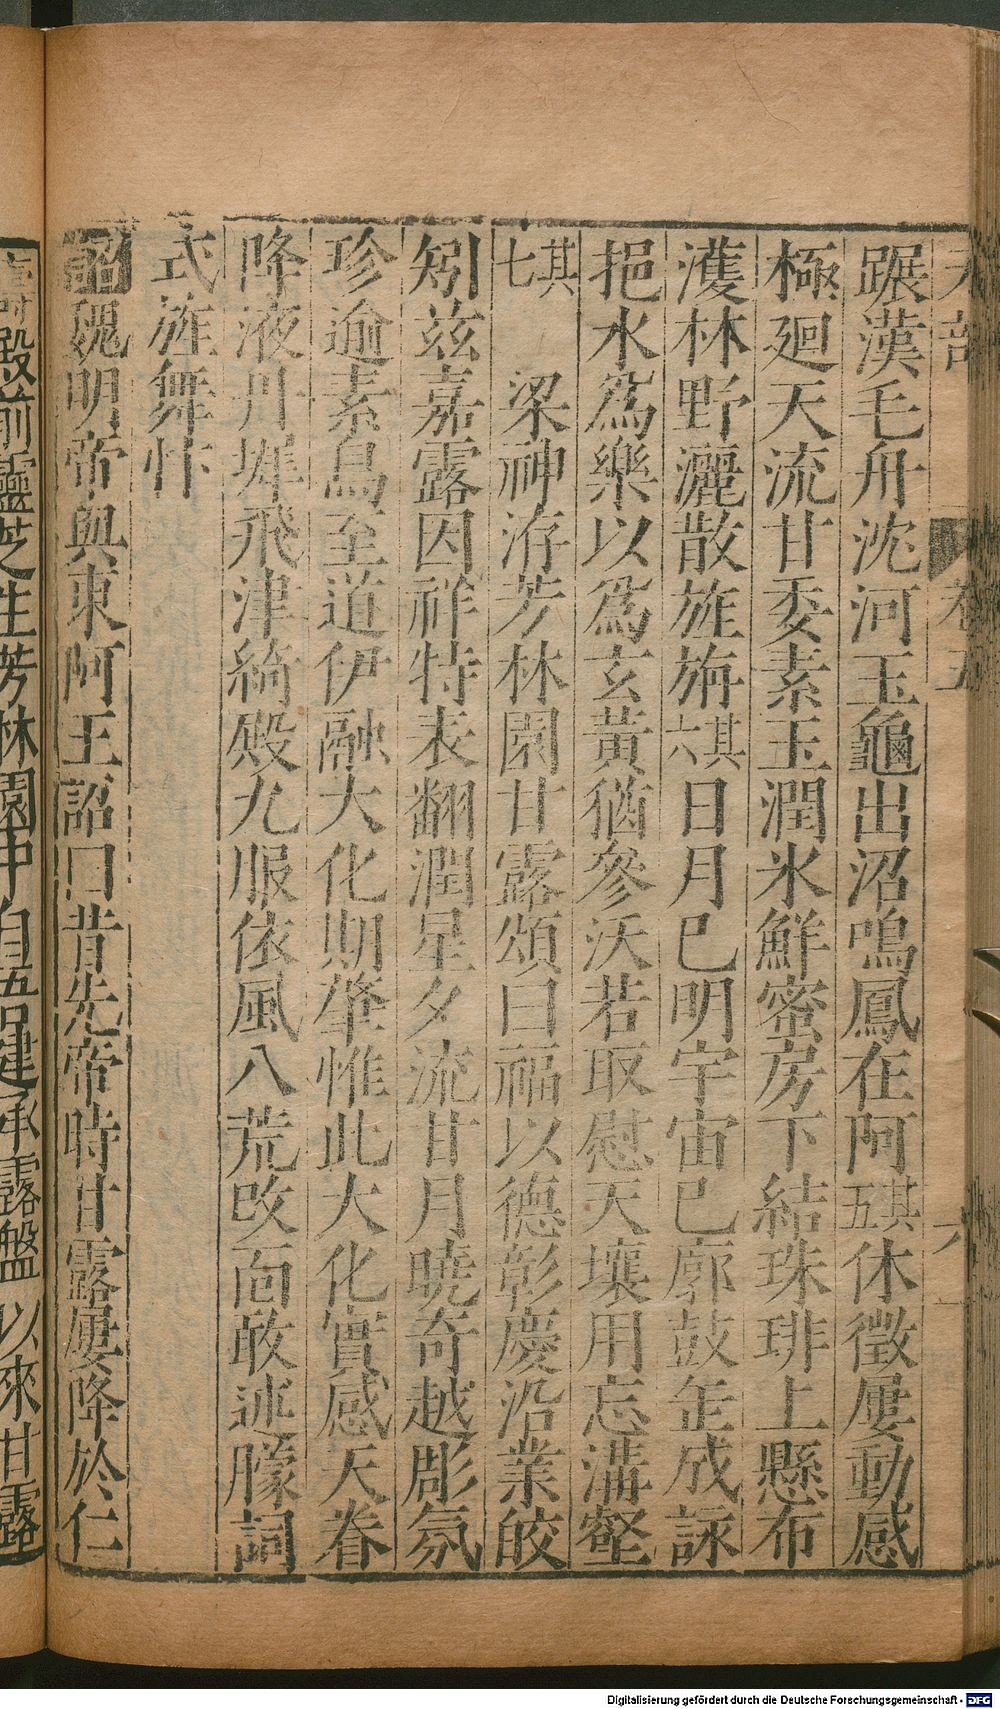 天部 卷五 六
蹍漢毛舟沈河玉龜出沼鳴鳳在阿其五休徵屢動感
極廻天流甘委素玉潤氷鮮蜜房下結珠琲上懸布
濩林野灑散旌旃其六日月巳明宇宙巳廓鼓缶成詠
挹水爲樂以爲玄黃猶參沃若取慰天壤用忘溝壑
其七 梁神洊芳林園甘露頌曰福以德彰慶沿業皎
矧茲嘉露因祥特表翻潤星夕流甘月曉奇越彫氛
珍逾素鳥至道伊融大化期肇惟此大化實感天眷
降液丹墀飛津綺殿九服依風八荒改面敢述朦詞
式旌舞忭
詔魏明帝與東阿王詔曰昔先帝時甘露屢降於仁
殿前靈芝生芳林園中自吾建承露盤以來甘露
Digitalisierung gefördert durch die Deutsche Forschungsgemeinschaft - DFG